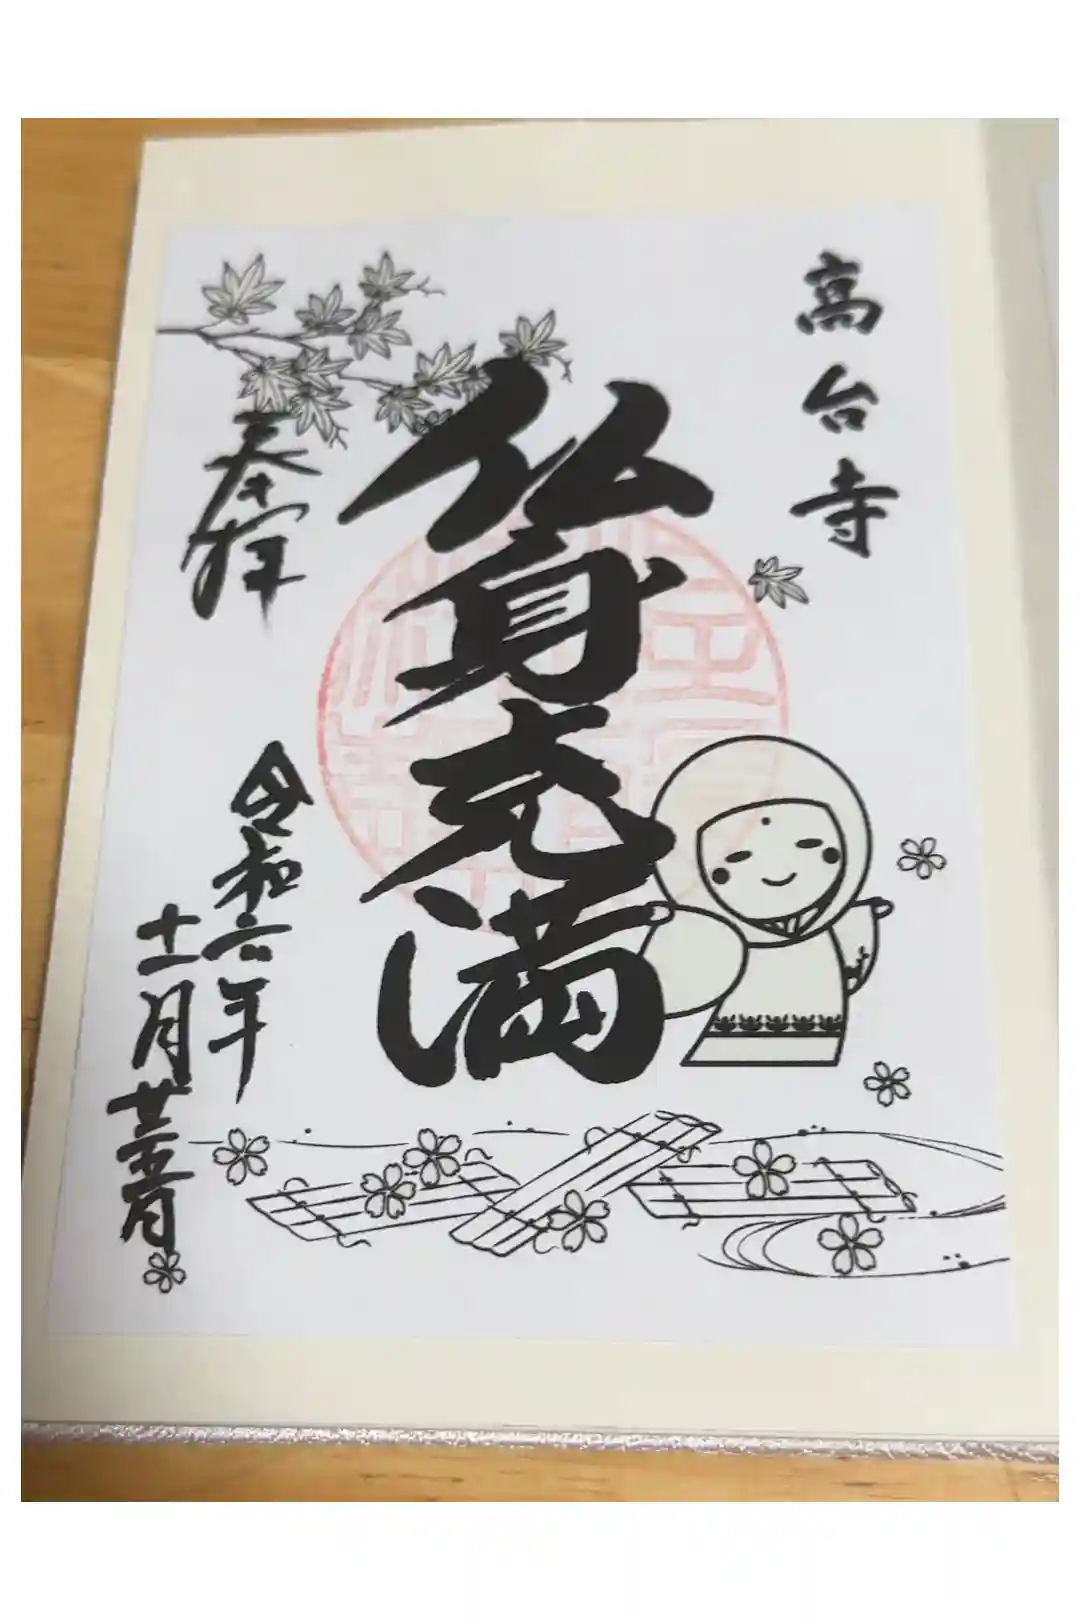 高台寺
仏身充満
奉拝
令和六年
十一月廿五日